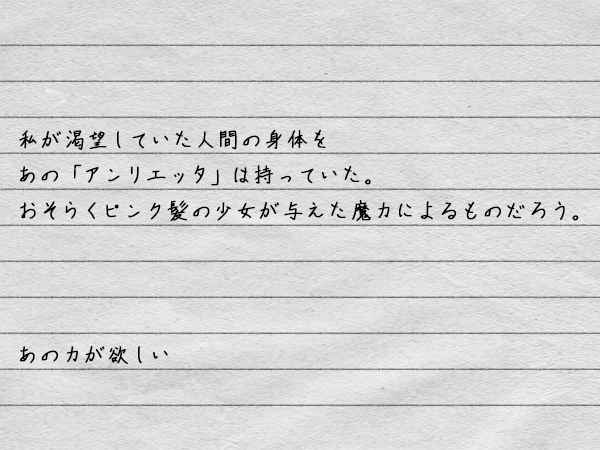 私が渇望していた人間の身体を
あの「アンリエッタ」は持っていた。
おそらくピンク髪の少女が与えた魔力によるものだろう。
あの力が欲しい